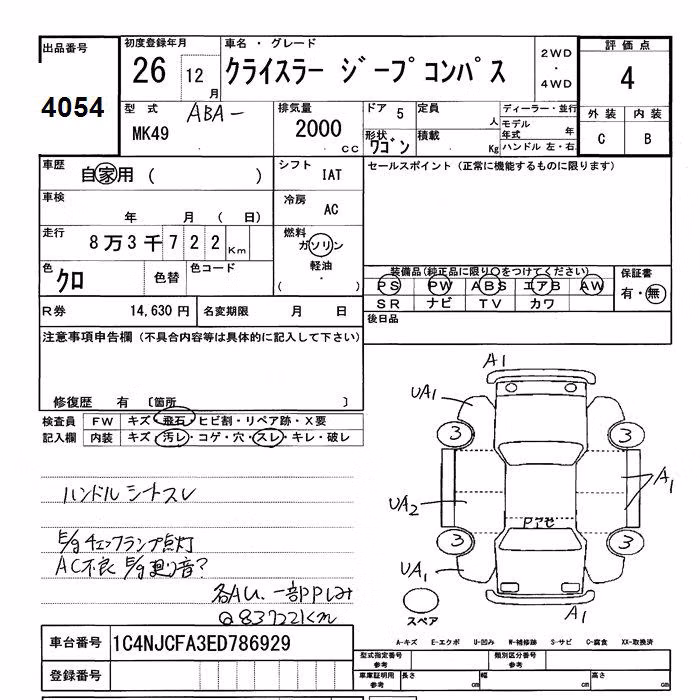 出品番号 初度登録年月 車名・グレード 評価点
4054 26 12月 クライスラー ジープコンパス 2WD・4WD 4
型式 ABA- MK49 排気量 2000 cc ドア 5 定員 人 ディーラー・並行 外装 内装
形状 ワゴン 積載 Kg モデル年式 年 ハンドル 左・右 C B
車歴 自家用 ( ) シフト IAT セールスポイント (正常に機能するものに限ります)
車検 年 月 ( 日) 冷房 AC
走行 8万3千722Km 燃料 ガソリン 軽油 ( ・ )
色 クロ 色替 色コード
装備品(純正品に限り○をつけてください) 保証書
PS PW ABS エアB AW 有・無
SR ナビ TV カワ
R券 14,630円 名変期限 月 日 後日品
注意事項申告欄 (不具合内容等は具体的に記入して下さい)
修復歴 有 〔箇所 〕
検査員 FW キズ・飛石・ヒビ割・リペア跡・X要
記入欄 内装 キズ・汚レ・コゲ・穴・スレ・キレ・破レ
A1
UA1
3 3
UA2 A1
Pアセ
3 3
UA1
A1
スペア
ハンドル シートスレ
E/gチェックランプ点灯
AC不良 E/g廻り音?
各AU、一部PPしみ
@83722km
A-キズ E-エクボ U-凹み W-補修跡 S-サビ C-腐食 XX-取換済
車台番号 1C4NJCFA3ED786929
登録番号
型式指定番号 参考 類別区分番号 参考
車庫証明用 参考 長さ cm 幅 cm 高さ cm